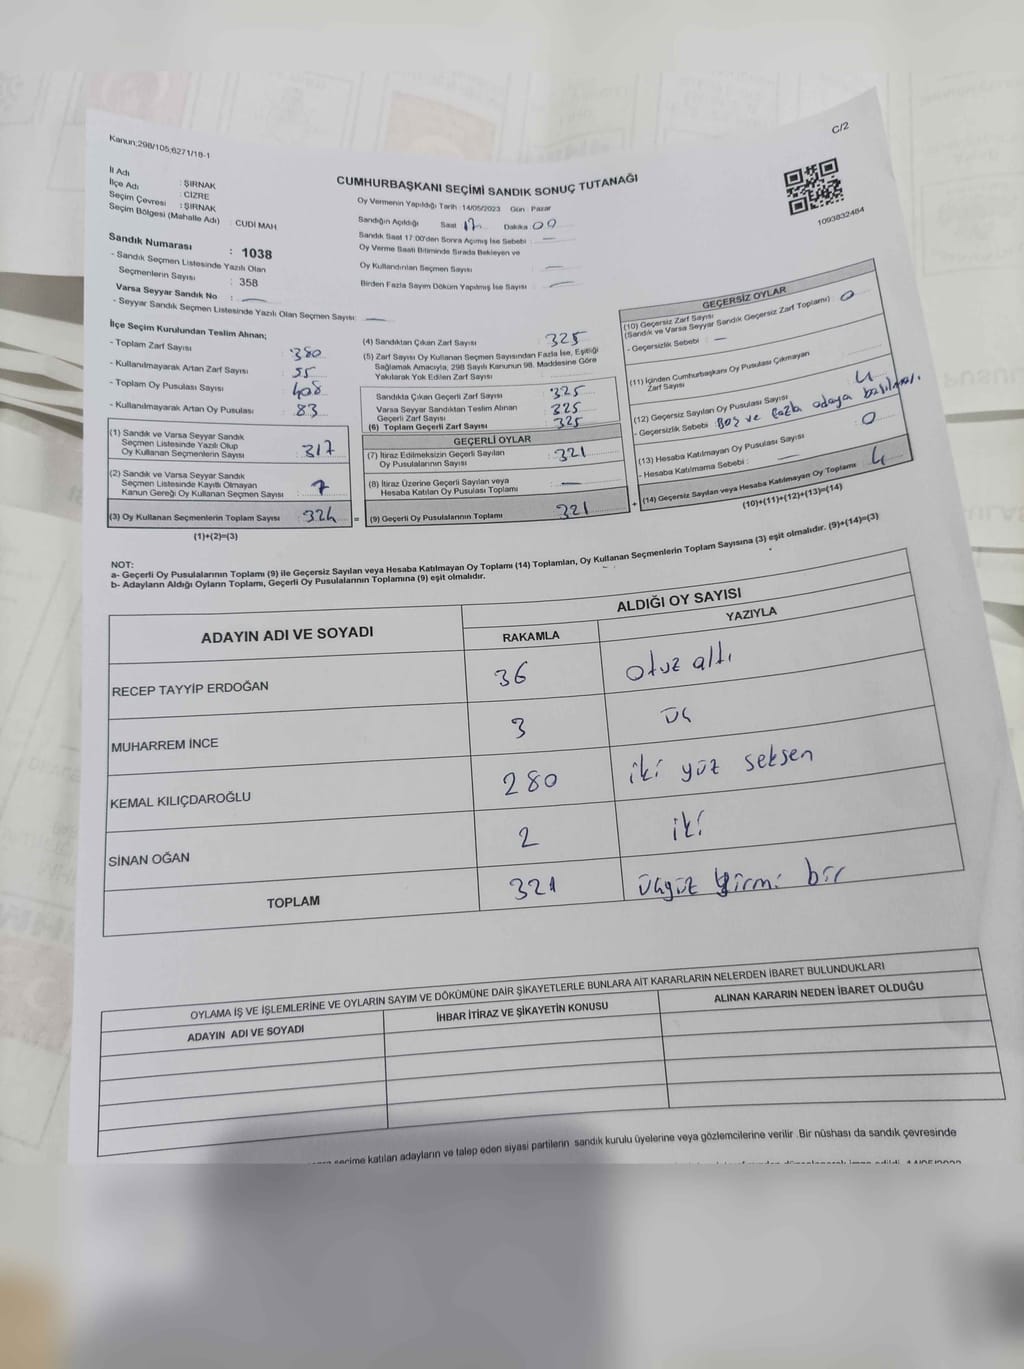 Kanun;298/105;6271/18-1
C/2
İl Adı : ŞIRNAK
İlçe Adı : CİZRE
Seçim Çevresi : ŞIRNAK
Seçim Bölgesi (Mahalle Adı) : CUDİ MAH
Sandık Numarası : 1038
- Sandık Seçmen Listesinde Yazılı Olan
Seçmenlerin Sayısı : 358
Varsa Seyyar Sandık No : —
- Seyyar Sandık Seçmen Listesinde Yazılı Olan Seçmen Sayısı: —
CUMHURBAŞKANI SEÇİMİ SANDIK SONUÇ TUTANAĞI
Oy Vermenin Yapıldığı Tarih : 14/05/2023 Gün : Pazar
Sandığın Açıldığı Saat 17 Dakika 09
Sandık Saat 17:00'den Sonra Açımış İse Sebebi : —
Oy Verme Saati Bitiminde Sırada Bekleyen ve
Oy Kullandırılan Seçmen Sayısı —
Birden Fazla Sayım Döküm Yapılmış İse Sayısı : —
1093832464
İlçe Seçim Kurulundan Teslim Alınan;
- Toplam Zarf Sayısı : 380
- Kullanılmayarak Artan Zarf Sayısı : 55
- Toplam Oy Pusulası Sayısı : 408
- Kullanılmayarak Artan Oy Pusulası : 83
(1) Sandık ve Varsa Seyyar Sandık
Seçmen Listesinde Yazılı Olup
Oy Kullanan Seçmenlerin Sayısı : 317
(2) Sandık ve Varsa Seyyar Sandık
Seçmen Listesinde Kayıtlı Olmayan
Kanun Gereği Oy Kullanan Seçmen Sayısı : 7
(3) Oy Kullanan Seçmenlerin Toplam Sayısı : 324
(1)+(2)=(3)
(4) Sandıktan Çıkan Zarf Sayısı : 325
(5) Zarf Sayısı Oy Kullanan Seçmen Sayısından Fazla İse, Eşitliği
Sağlamak Amacıyla, 298 Sayılı Kanunun 98. Maddesine Göre
Yakılarak Yok Edilen Zarf Sayısı
Sandıkta Çıkan Geçerli Zarf Sayısı : 325
Varsa Seyyar Sandıktan Teslim Alınan
Geçerli Zarf Sayısı : 325
(6) Toplam Geçerli Zarf Sayısı : 325
GEÇERLİ OYLAR
(7) İtiraz Edilmeksizin Geçerli Sayılan
Oy Pusulalarının Sayısı : 321
(8) İtiraz Üzerine Geçerli Sayılan veya
Hesaba Katılan Oy Pusulası Toplamı : —
= (9) Geçerli Oy Pusulalarının Toplamı : 321
GEÇERSİZ OYLAR
(10) Geçersiz Zarf Sayısı
(Sandık ve Varsa Seyyar Sandık Geçersiz Zarf Toplamı) : 0
- Geçersizlik Sebebi : —
(11) İçinden Cumhurbaşkanı Oy Pusulası Çıkmayan
Zarf Sayısı
(12) Geçersiz Sayılan Oy Pusulası Sayısı : 4
- Geçersizlik Sebebi Boş ve fazla adaya basılması.
(13) Hesaba Katılmayan Oy Pusulası Sayısı : 0
- Hesaba Katılmama Sebebi : —
+ (14) Geçersiz Sayılan veya Hesaba Katılmayan Oy Toplamı : 4
(10)+(11)+(12)+(13)=(14)
NOT:
a- Geçerli Oy Pusulalarının Toplamı (9) ile Geçersiz Sayılan veya Hesaba Katılmayan Oy Toplamı (14) Toplamları, Oy Kullanan Seçmenlerin Toplam Sayısına (3) eşit olmalıdır. (9)+(14)=(3)
b- Adayların Aldığı Oyların Toplamı, Geçerli Oy Pusulalarının Toplamına (9) eşit olmalıdır.
ADAYIN ADI VE SOYADI ALDIĞI OY SAYISI
RAKAMLA YAZIYLA
RECEP TAYYİP ERDOĞAN 36 otuz altı
MUHARREM İNCE 3 üç
KEMAL KILIÇDAROĞLU 280 iki yüz seksen
SİNAN OĞAN 2 iki
TOPLAM 321 üçyüz yirmi bir
OYLAMA İŞ VE İŞLEMLERİNE VE OYLARIN SAYIM VE DÖKÜMÜNE DAİR ŞİKAYETLERLE BUNLARA AİT KARARLARIN NELERDEN İBARET BULUNDUKLARI
ADAYIN ADI VE SOYADI İHBAR İTİRAZ VE ŞİKAYETİN KONUSU ALINAN KARARIN NEDEN İBARET OLDUĞU
seçime katılan adayların ve talep eden siyasi partilerin sandık kurulu üyelerine veya gözlemcilerine verilir .Bir nüshası da sandık çevresinde